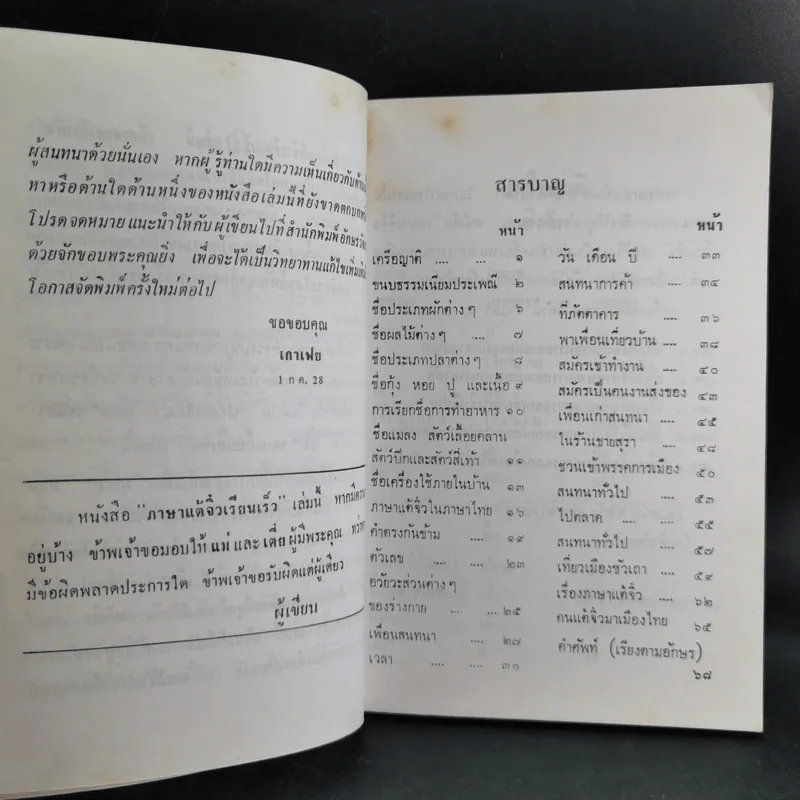 ผู้สนทนาด้วยนั่นเอง หากผู้รู้ท่านใดมีความเห็นเกี่ยวกับด้าน
หาหรือด้านใดด้านหนึ่งของหนังสือเล่มนี้ที่ยังขาดตกบกพร่อง
โปรดจดหมายแนะนำให้กับผู้เขียนไปที่สำนักพิมพ์อักษรวัฒนา
ด้วยจักขอบพระคุณยิ่ง เพื่อจะได้เป็นวิทยาทานแก้ไขเพิ่มเติมใน
โอกาสจัดพิมพ์ครั้งใหม่ต่อไป
ขอขอบคุณ
เกาเฟย
1 ก ค. 28
หนังสือ "ภาษาแต้จิ๋วเรียนเร็ว" เล่มนี้ หากมีความ
อยู่บ้าง ข้าพเจ้าขอมอบให้ แม่ และ เตี่ย ผู้มีพระคุณ
มีข้อผิดพลาดประการใด ข้าพเจ้าขอรับผิดแต่ผู้เดียว
ผู้เขียน
สารบาญ
หน้า
เครือญาติ .... ... ๑
ขนบธรรมเนียมประเพณี ๒
ชื่อประเภทผักต่าง ๆ ๖
ชื่อผลไม้ต่าง ๆ .... ๗
ชื่อประเภทปลาต่าง ๆ ๘
ชื่อกุ้ง หอย ปู และเนื้อ ๙
การเรียกชื่อการทำอาหาร ๑๐
ชื่อแมลง สัตว์เลื้อยคลาน
สัตว์ปีกและสัตว์สี่เท้า ๑๑
ชื่อเครื่องใช้ภายในบ้าน ๑๓
ภาษาแต้จิ๋วในภาษาไทย ๑๖
คำตรงกันข้าม .... ๑๙
ตัวเลข .... ... ๒๓
อวัยวะส่วนต่าง ๆ
ของร่างกาย .... ๒๕
เพื่อนสนทนา .... ๒๗
เวลา .... .... ๓๑
หน้า
วัน เดือน ปี .... ๓๓
สนทนาการค้า .... ๓๔
ที่ภัตตาคาร .... ๓๖
พาเพื่อนเที่ยวบ้าน .... ๓๘
สมัครเข้าทำงาน .... ๔๐
สมัครเป็นคนงานส่งของ ๔๓
เพื่อนเก่าสนทนา .... ๔๕
ในร้านขายสุรา .... ๔๘
ชวนเข้าพรรคการเมือง ๕๐
สนทนาทั่วไป .... ๕๓
ไปตลาด .... .... ๕๕
สนทนาทั่วไป .... ๕๗
เที่ยวเมืองซัวเถา .... ๕๙
เรื่องภาษาแต้จิ๋ว .... ๖๒
คนแต้จิ๋วมาเมืองไทย ๖๕
คำศัพท์ (เรียงตามอักษร)
๖๘